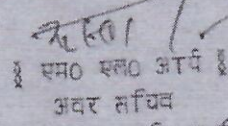 एम0 एल0 आर्य
अवर सचिव